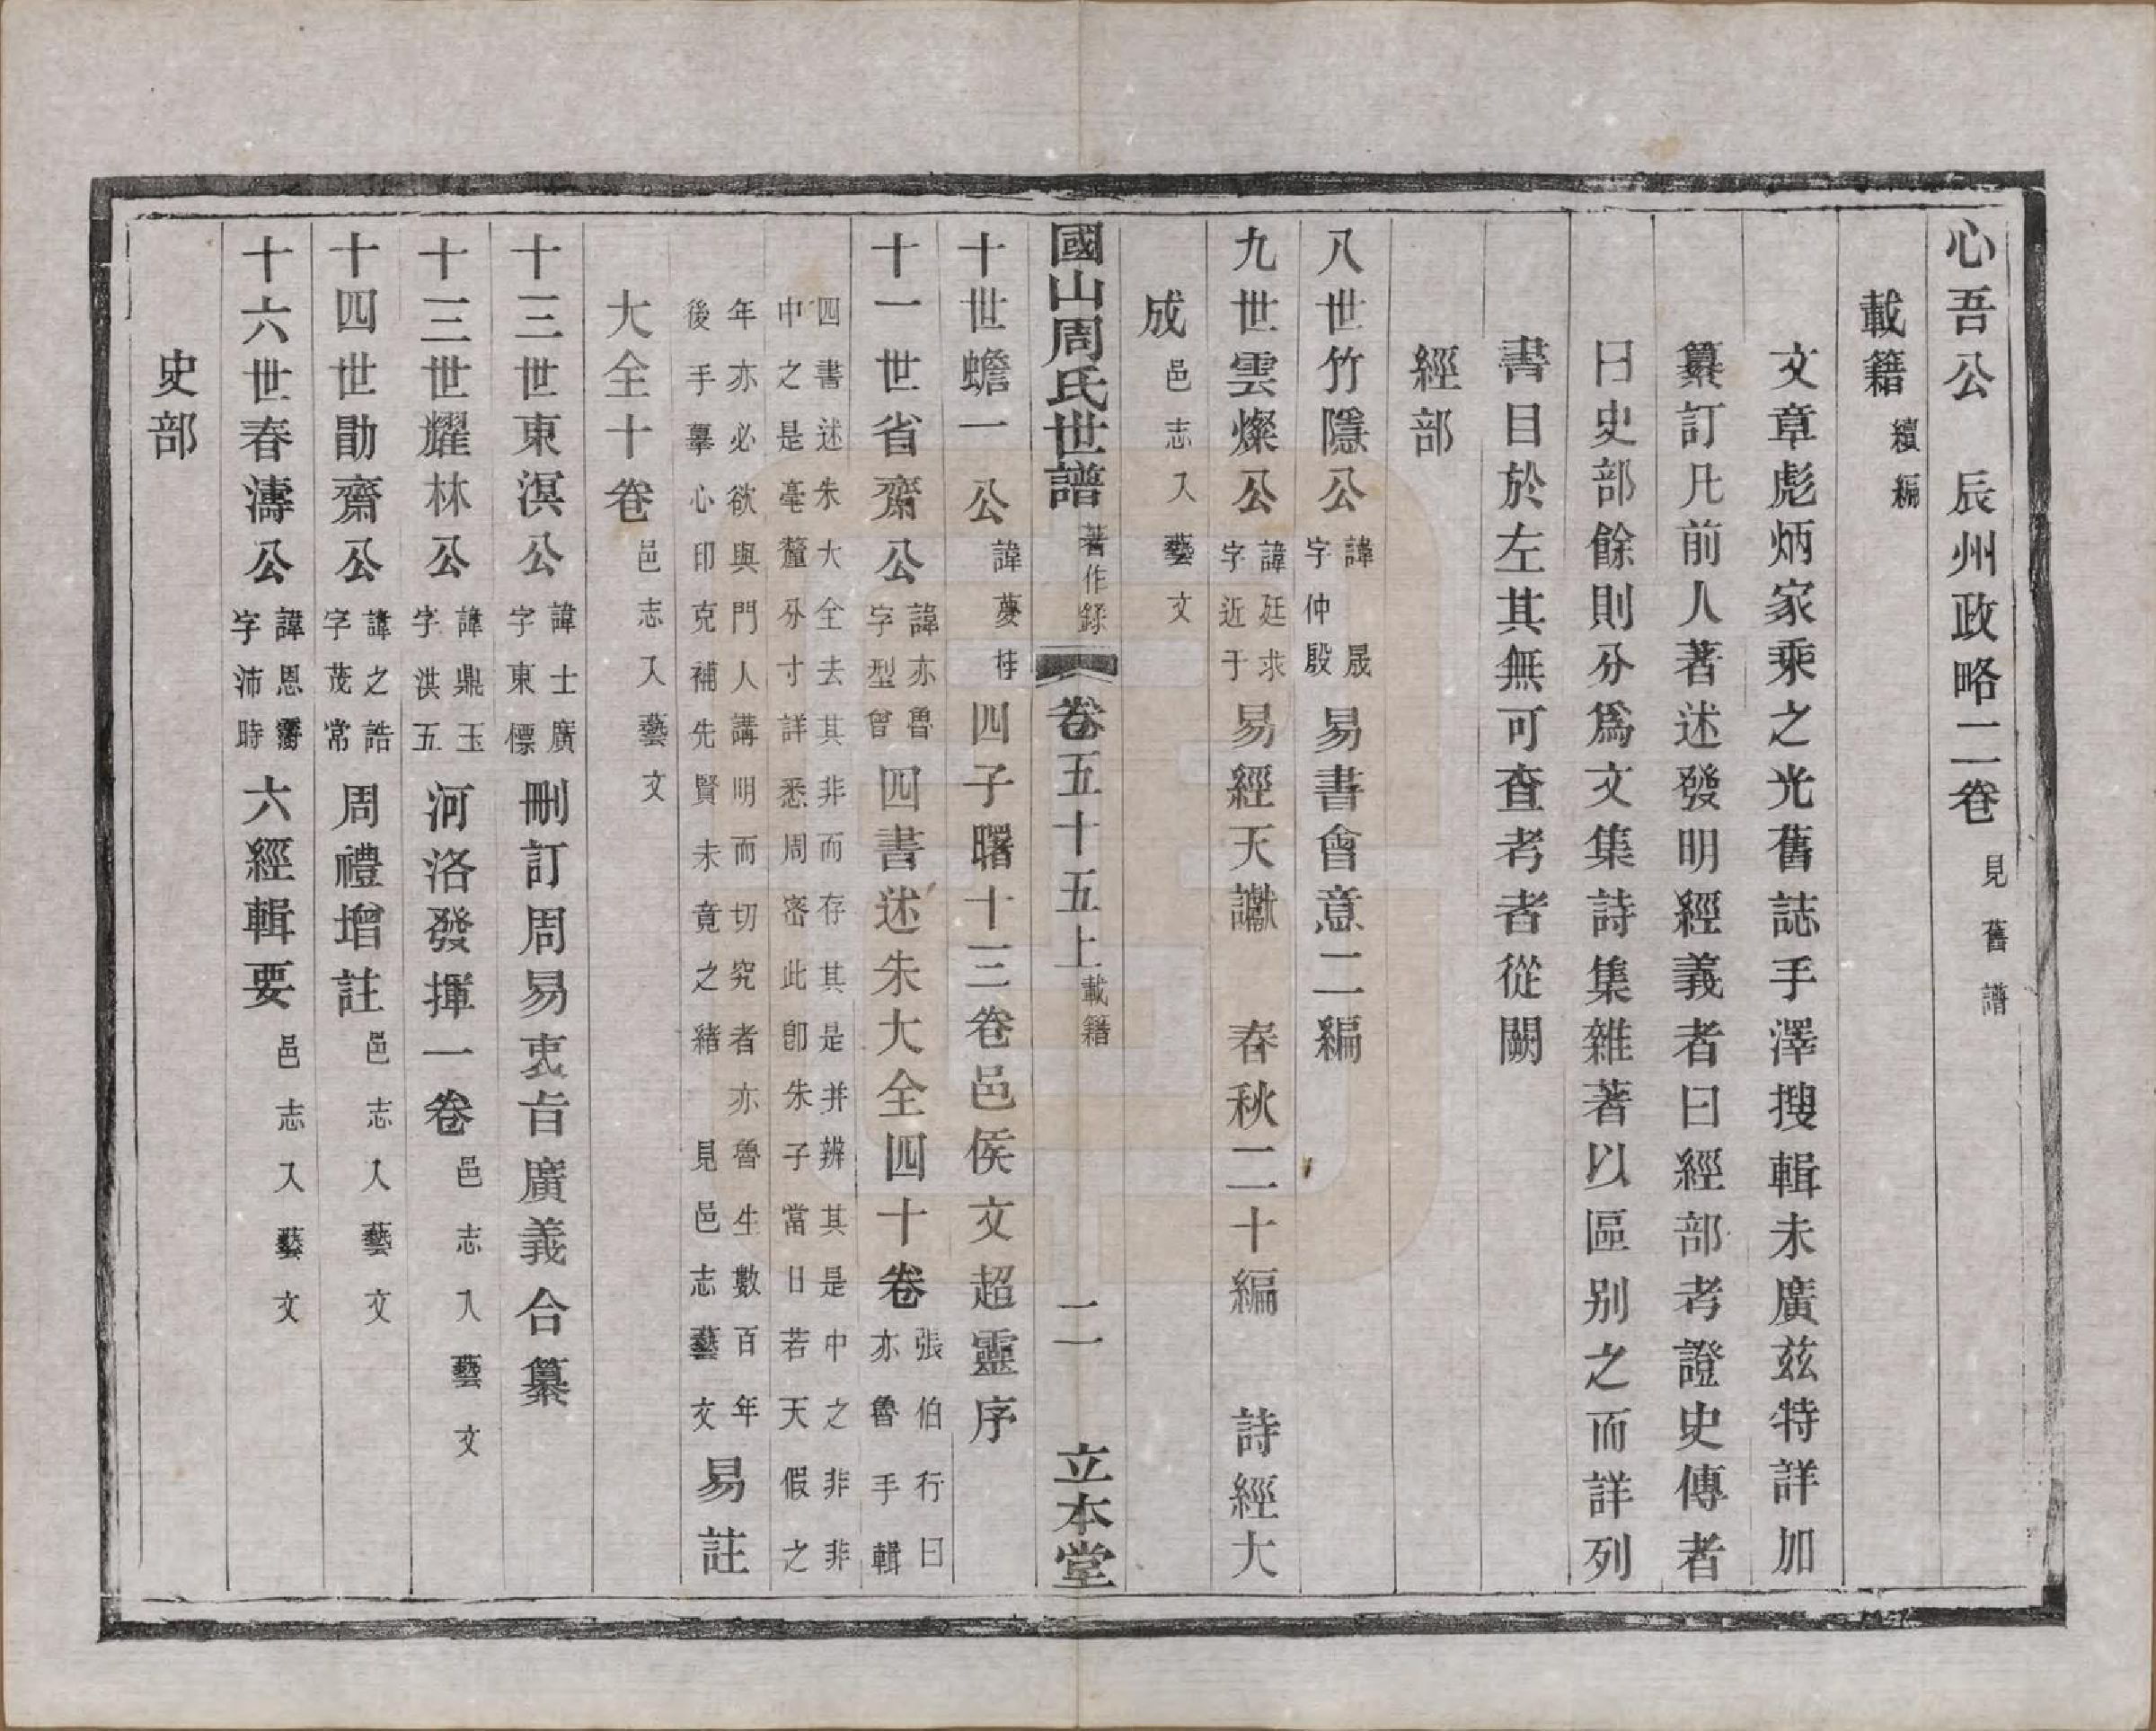 心吾公　辰州政略二卷見舊譜
載籍續編
文章彪炳家乘之光舊誌手澤搜輯未廣茲特詳加
纂訂凡前人著述發明經義者曰經部考證史傳者
曰史部餘則分爲文集詩集雜著以區別之而詳列
書目於左其無可查考者從闕
經部
八世竹隱公諱晟字仲殷易書會意二編
九世雲燦公諱廷求字近于易經天讞　春秋二十編　詩經大
成邑志入藝文
國山周氏世譜著作錄　卷五十五上載籍　二　立本堂
十世蟾一公諱夢桂四子曙十三卷邑侯文超靈序
十一世省齋公諱亦魯字型曾四書述朱大全四十卷張伯行曰亦魯手輯
四書述朱大全去其非而存其是并辨其是中之非非
中之是毫釐分寸詳悉周密此卽朱子當日若天假之
年亦必欲與門人講明而切究者亦魯生數百年
後手摹心印克補先賢未竟之緒　見邑志藝文易註
大全十卷邑志入藝文
十三世東溟公諱士廣字東標刪訂周易衷旨廣義合纂
十三世耀林公諱鼎玉字洪五河洛發揮一卷邑志入藝文
十四世勖齋公諱之誥字茂常周禮增註邑志入藝文
十六世春濤公諱恩霨字沛時六經輯要邑志入藝文
史部